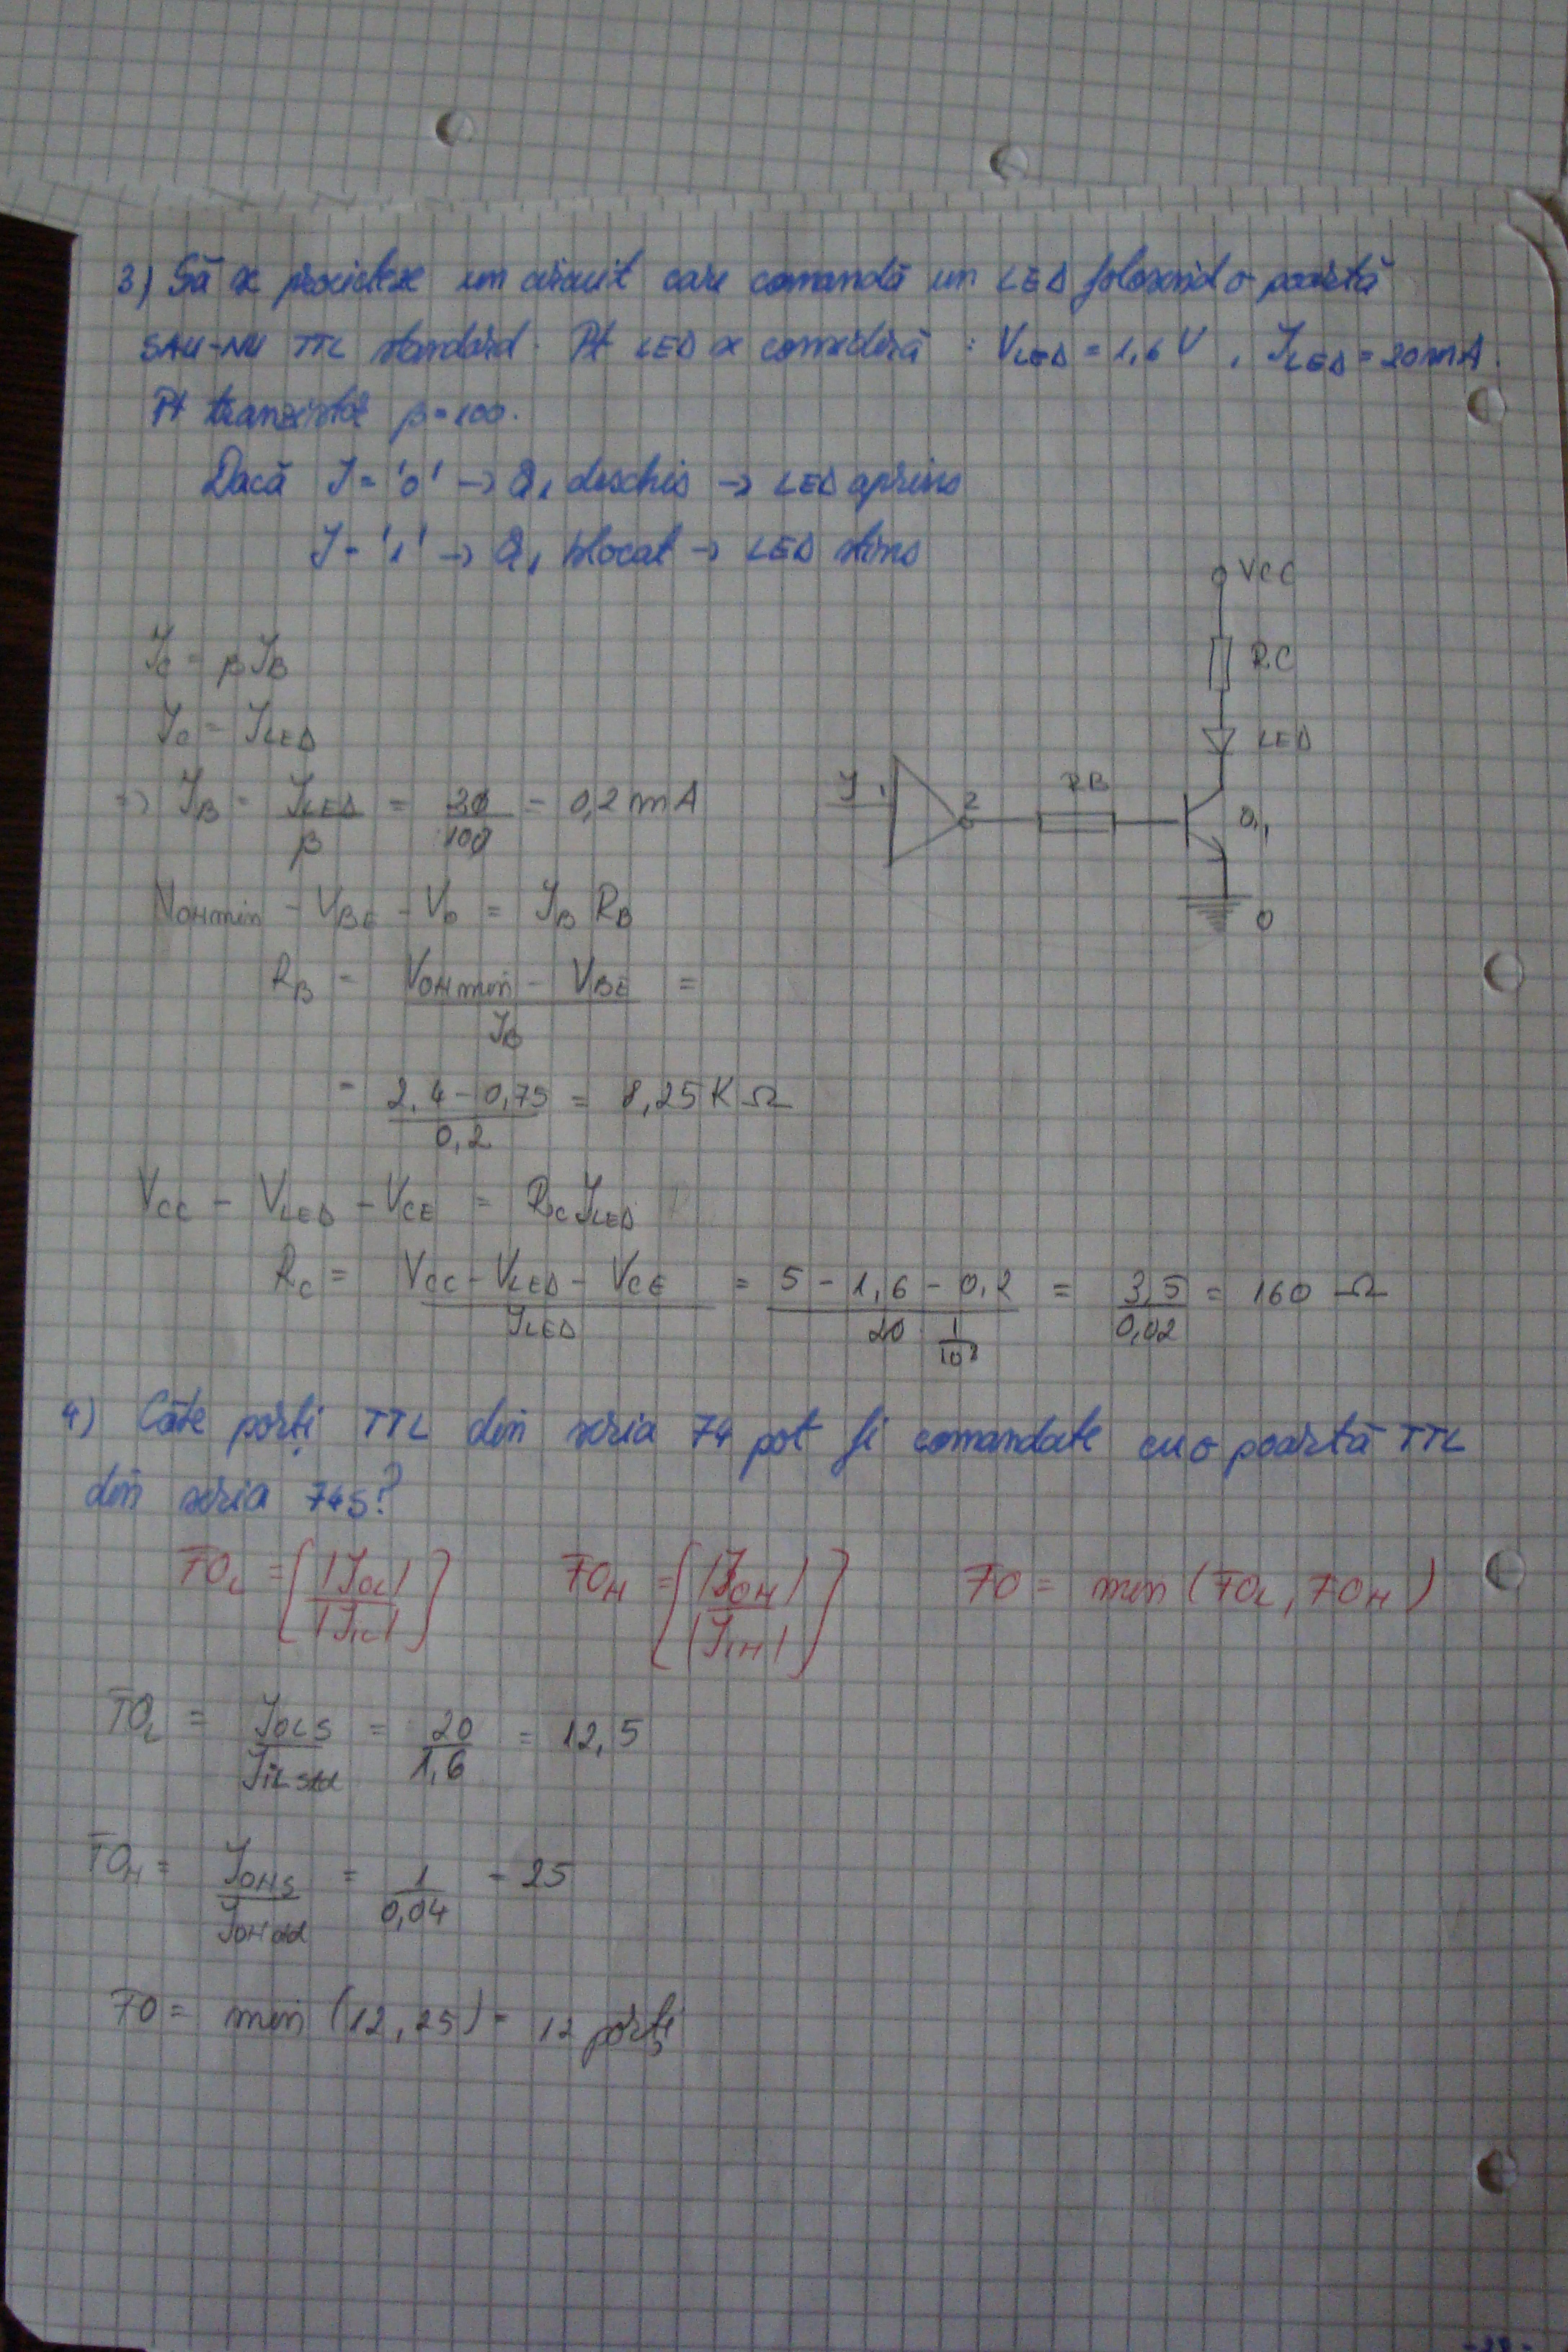 3) Să se proiecteze un circuit care comandă un LED folosind o poartă
SAU-NU TTL standard. Pt LED se consideră : VLED = 1,6 V , ILED = 20 mA.
Pt tranzistor β = 100.
Dacă I = '0' → Q1 deschis → LED aprins
I = '1' → Q1 blocat → LED stins
VCC
RC
LED
I 1 2 RB Q1
0
IC = β IB
IC = ILED
=> IB = ILED / β = 20 / 100 = 0,2 mA
VOHmin - VBE - V0 = IB RB
RB = VOHmin - VBE / IB =
= 2,4 - 0,75 / 0,2 = 8,25 KΩ
VCC - VLED - VCE = RC ILED
RC = VCC - VLED - VCE / ILED = 5 - 1,6 - 0,2 / 20 1/10³ = 3,5 / 0,02 = 160 Ω
4) Câte porți TTL din seria 74 pot fi comandate cu o poartă TTL
din seria 74S?
FOL = [|IOL| / |IIL|] FOH = [|IOH| / |IIH|] FO = min (FOL, FOH)
FOL = IOLS / IILstd = 20 / 1,6 = 12,5
FOH = IOHS / IOHstd = 1 / 0,04 = 25
FO = min (12, 25) = 12 porți